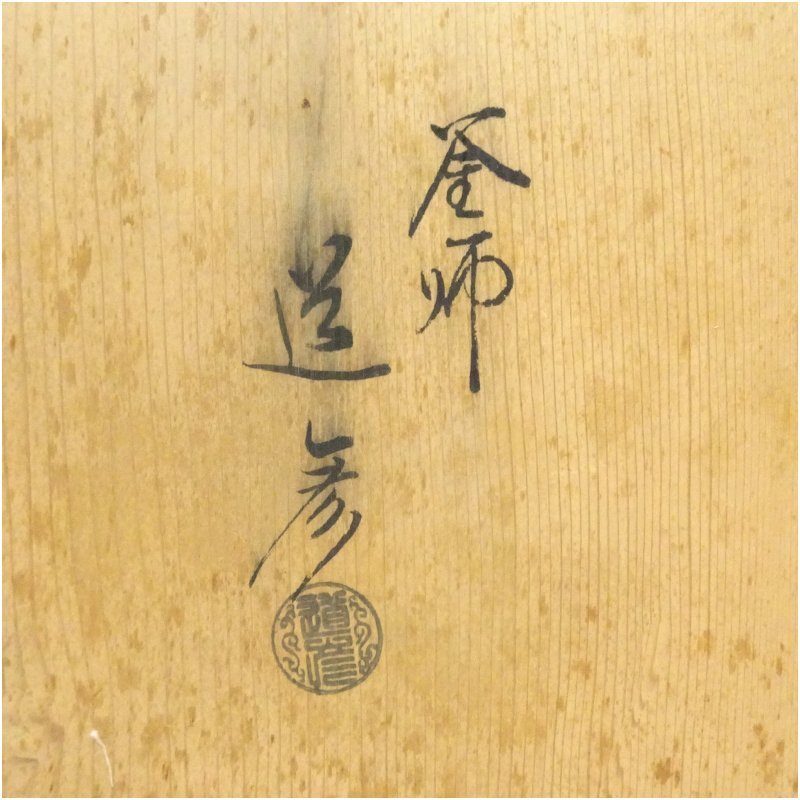 釜師
道彦
道彦